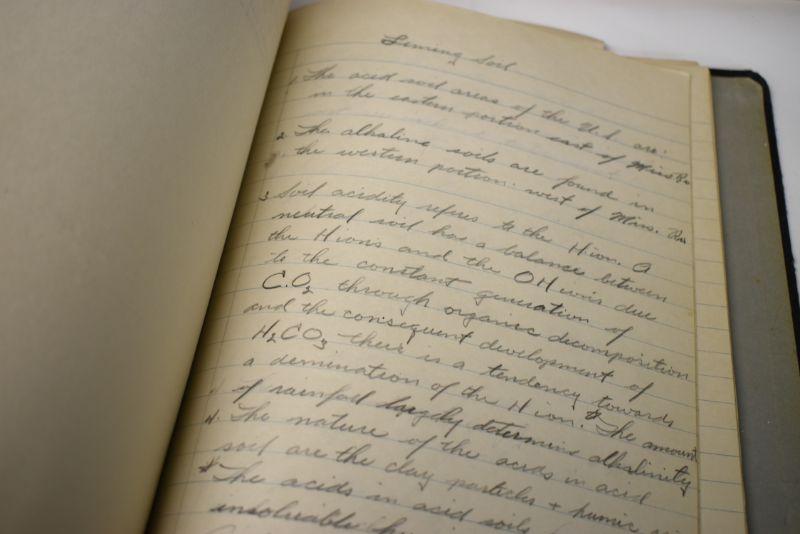 Liming Soil
1. The acid soil areas of the U.S. are:
in the eastern portion east of Miss. Riv
2. The alkaline soils are found in
the western portion: west of Miss. Riv
3. Soil acidity refers to the H ion. A
neutral soil has a balance between
the H ions and the OH ions due
to the constant generation of
C.O₂ through organic decomposition
and the consequent development of
H₂CO₃ there is a tendency towards
a demination of the H ion. * The amount
of rainfall largely determins alkalinity
4. The nature of the acids in acid
soil are the clay particles + humic
* The acids in acid soils
insoluable